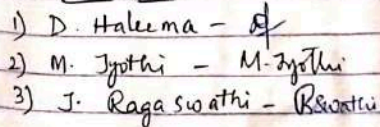 1) D. Haleema -
2) M. Jyothi - M. Jyothi
3) J. Raga swathi - RSwathi